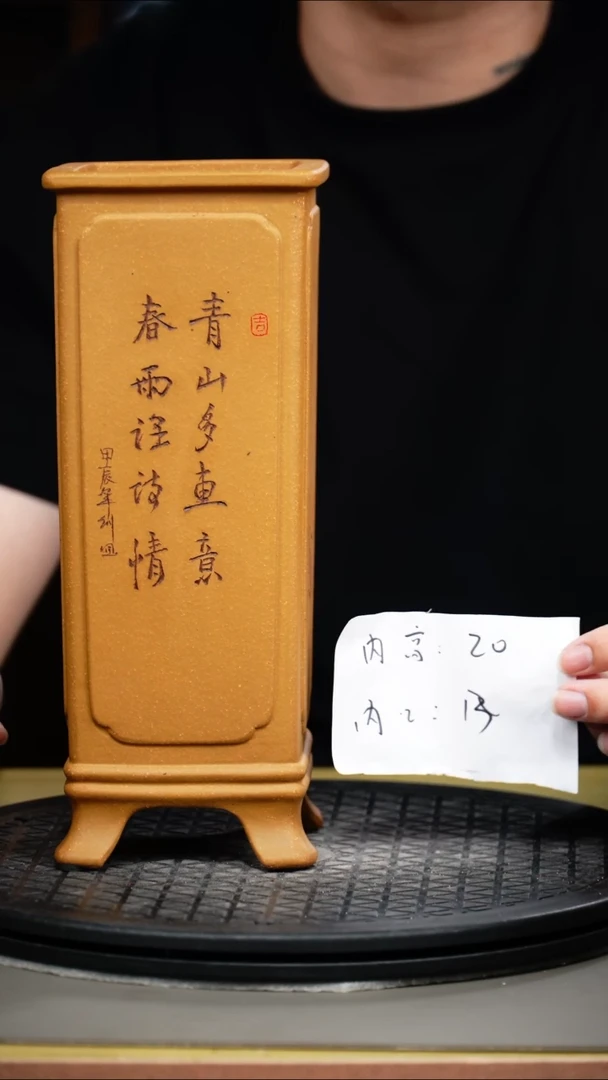 吉
青山多画意
春雨润诗情
甲辰年
内高: 20
内口: